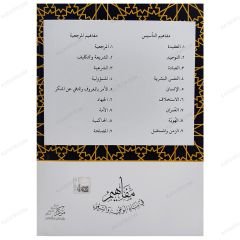 مفاهيم التأسيس
١. العقيدة
٢. التوحيد
٣. العبادة
٤. النفس البشرية
٥. الإنسان
٦. الاستخلاف
٧. العمران
٨. الهوية
٩. الزمن والمستقبل
مفاهيم المرجعية
١. المرجعية
٢. الشريعة والتكاليف
٣. الشرعية
٤. المسؤولية
٥. الأمر بالمعروف والنهي عن المنكر
٦. الجهاد
٧. الأمة
٨. الحاكمية
٩. المصلحة
مفاهيم